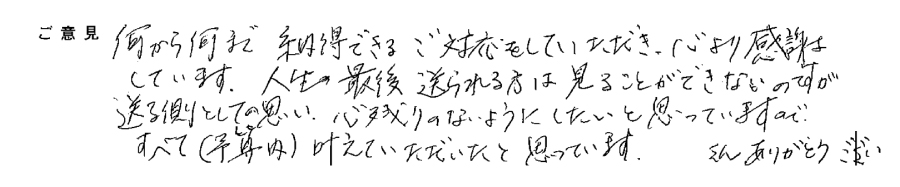 ご意見 何から何まで 納得できる ご対応をしていただき、心より感謝は
しています. 人生の最後 送られる方は見ることができないのですが
送る側としての思い、心残りのないようにしたいと思っていますので
すべて(予算内)叶えていただいたと思っています. ありがとう